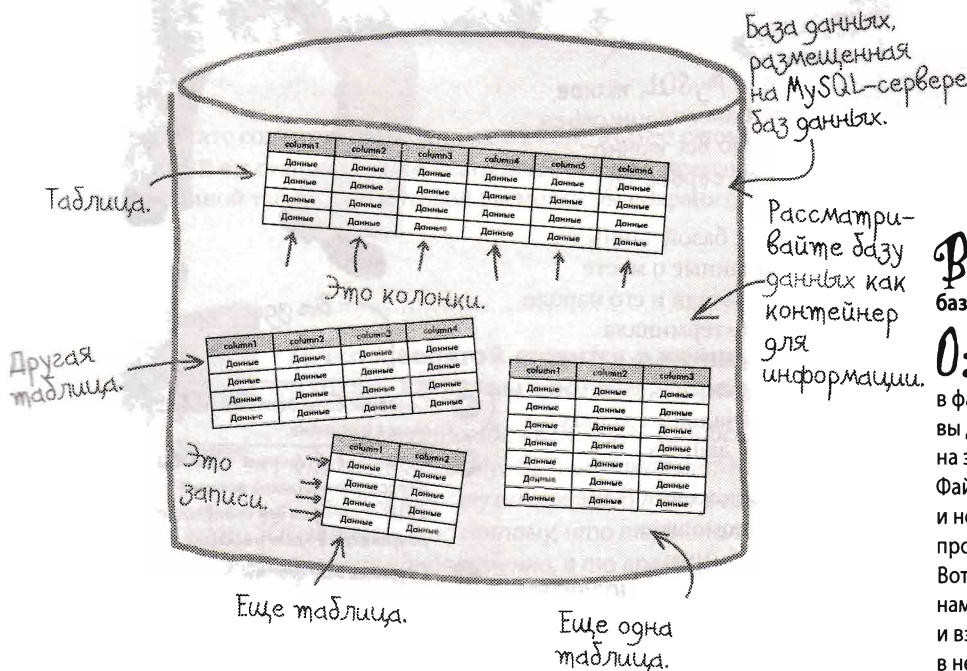 База данных,
размещенная
на MySQL-сервере
баз данных.
column1 column2 column3 column4 column5 column6
Данные Данные Данные Данные Данные Данные
Данные Данные Данные Данные Данные Данные
Данные Данные Данные Данные Данные Данные
Данные Данные Данные Данные Данные Данные
Таблица.
Это колонки.
Рассматри-
вайте базу
данных как
контейнер
для
информации.
Другая
таблица.
column1 column2 column3 column4
Данные Данные Данные Данные
Данные Данные Данные Данные
Данные Данные Данные Данные
Данные Данные Данные Данные
column1 column2 column3
Данные Данные Данные
Данные Данные Данные
Данные Данные Данные
Данные Данные Данные
Данные Данные Данные
Данные Данные Данные
Данные Данные Данные
Это
записи.
column1 column2
Данные Данные
Данные Данные
Данные Данные
Данные Данные
Еще таблица.
Еще одна
таблица.
В
баз
О:
в фа
вы д
на з
Фай
и не
про
Вот
нам
и вз
в не